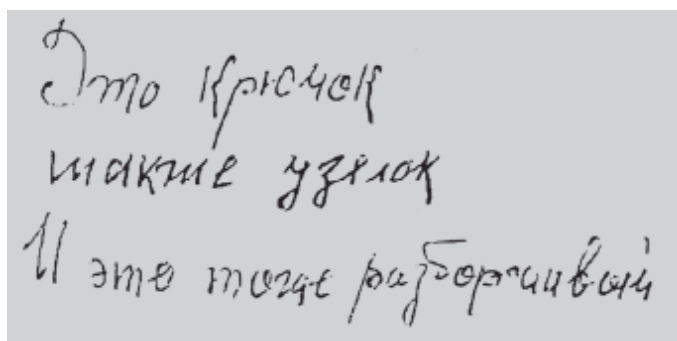 Это крючок
также узелок
И это тоже разборчивой